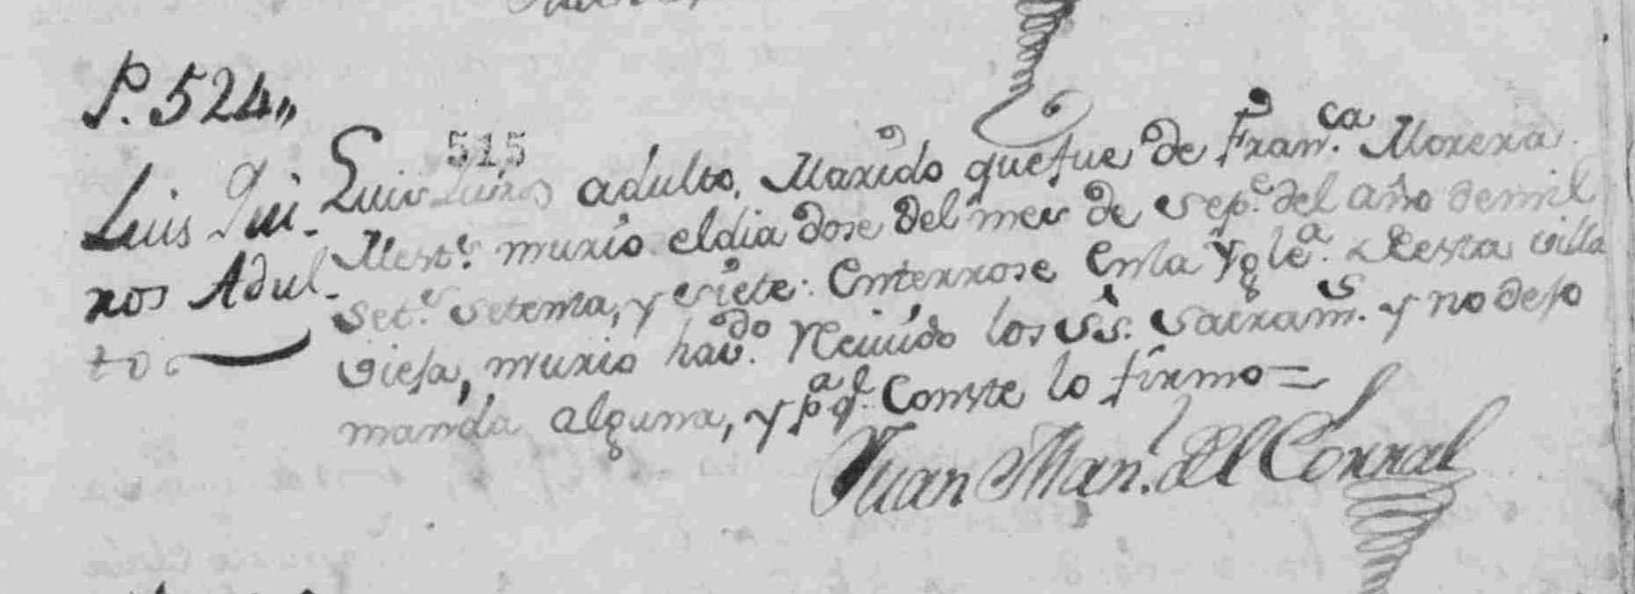 P. 524,,
515
Luis Qui-
ros Adul-
to
Luis Quiros adulto, Marido que fue de Fran.ca Morera
Mest.s murio el dia dose del mes de Sep.e del año de mil
Set.s Setenta, y Siete: Enterrose En la Ygle.a Desta villa
vieja, murio hav.do Reciuido los S.s Sacram.s y no dejo
manda alguna, y p.a q.l Conste lo firmo =
Juan Man.l del Corral